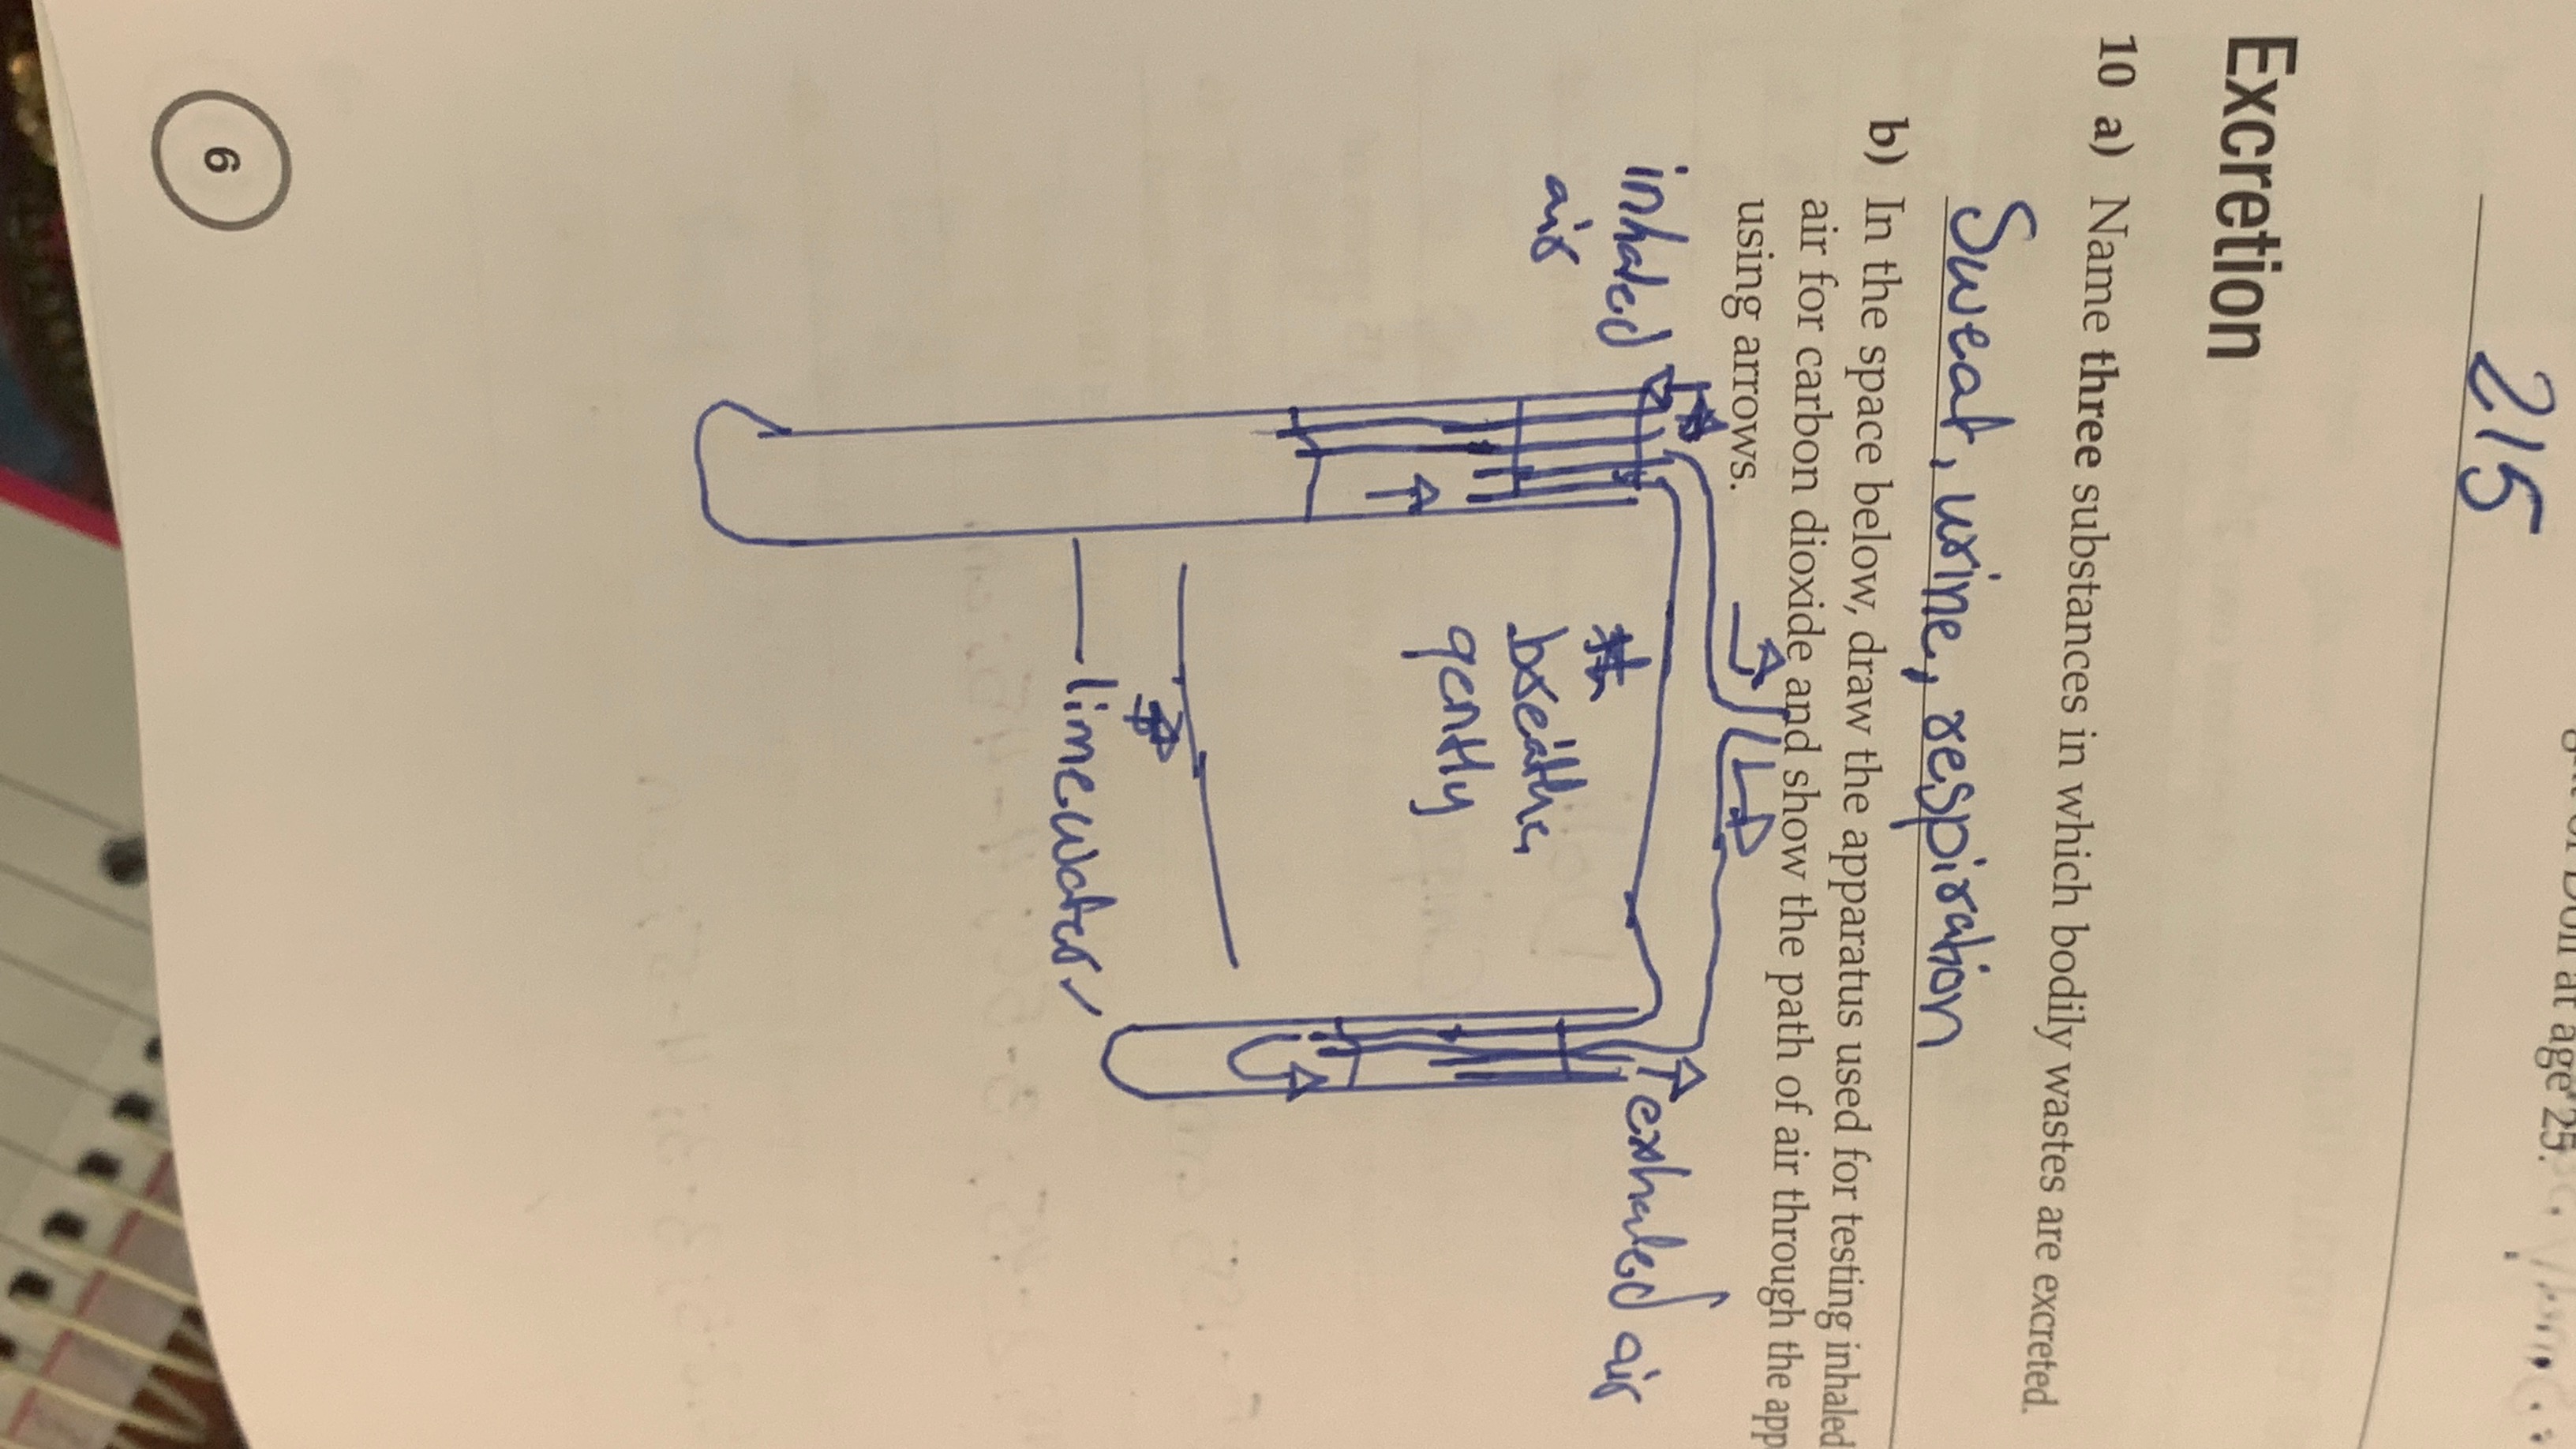 215
at age 25.
Excretion
10 a) Name three substances in which bodily wastes are excreted.
Sweat, urine, respiration
b) In the space below, draw the apparatus used for testing inhaled
air for carbon dioxide and show the path of air through the app
using arrows.
inhaled
air
exhaled air
breathe
gently
limewater
6